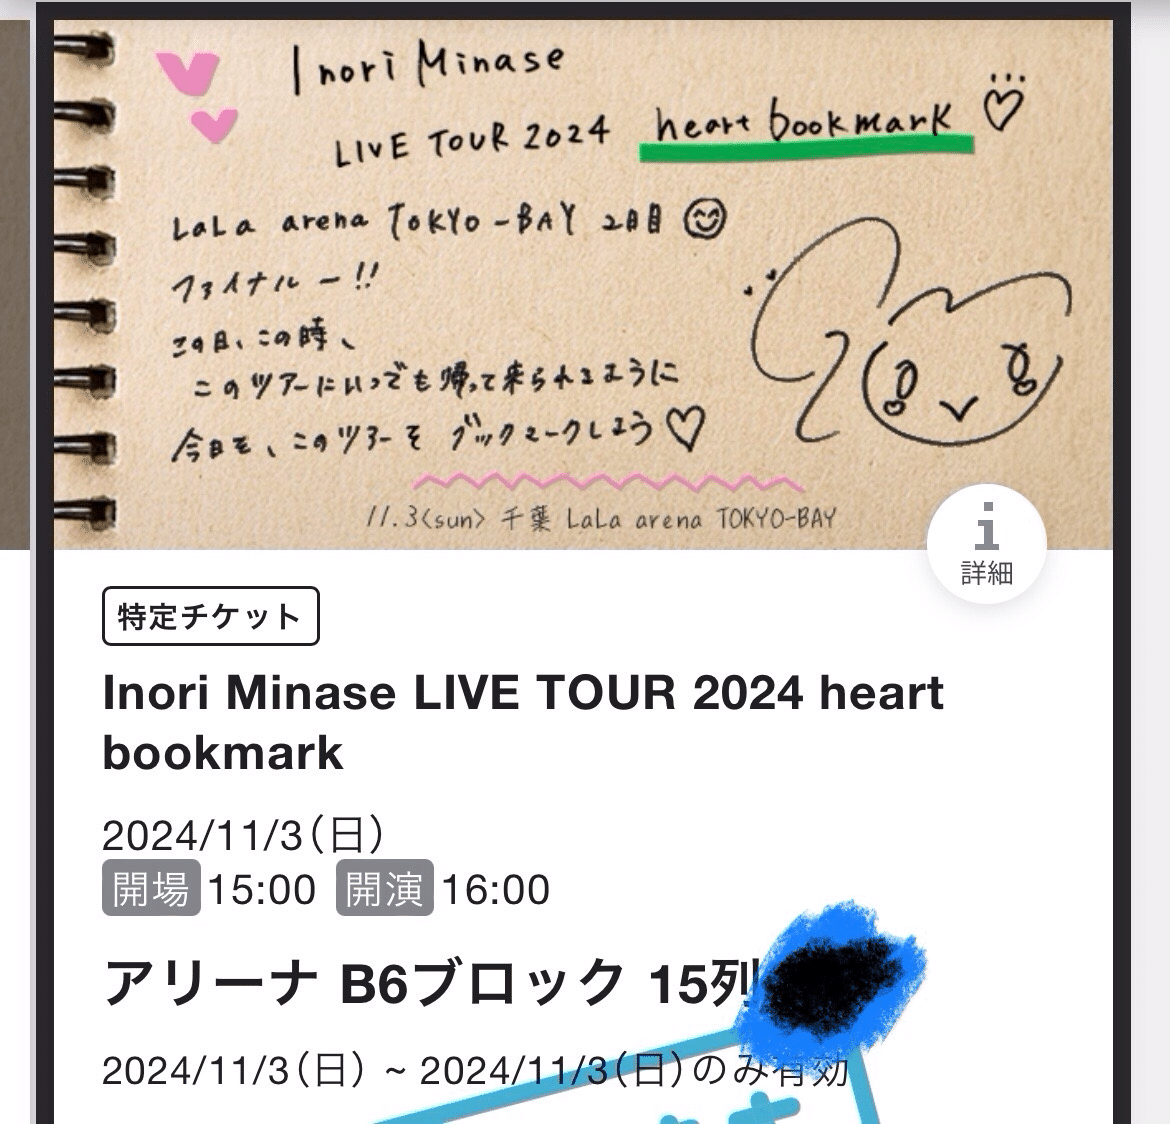 Inori Minase
LIVE TOUR 2024 heart bookmark
LaLa arena TOKYO-BAY 2日目
ファイナルー!!
この日、この時、
このツアーにいつでも帰って来られるように
今日を、このツアーをブックマークしよう
11.3<sun> 千葉 LaLa arena TOKYO-BAY
i
詳細
特定チケット
Inori Minase LIVE TOUR 2024 heart
bookmark
2024/11/3(日)
開場 15:00 開演 16:00
アリーナ B6ブロック 15列
2024/11/3(日) ~ 2024/11/3(日)のみ有効